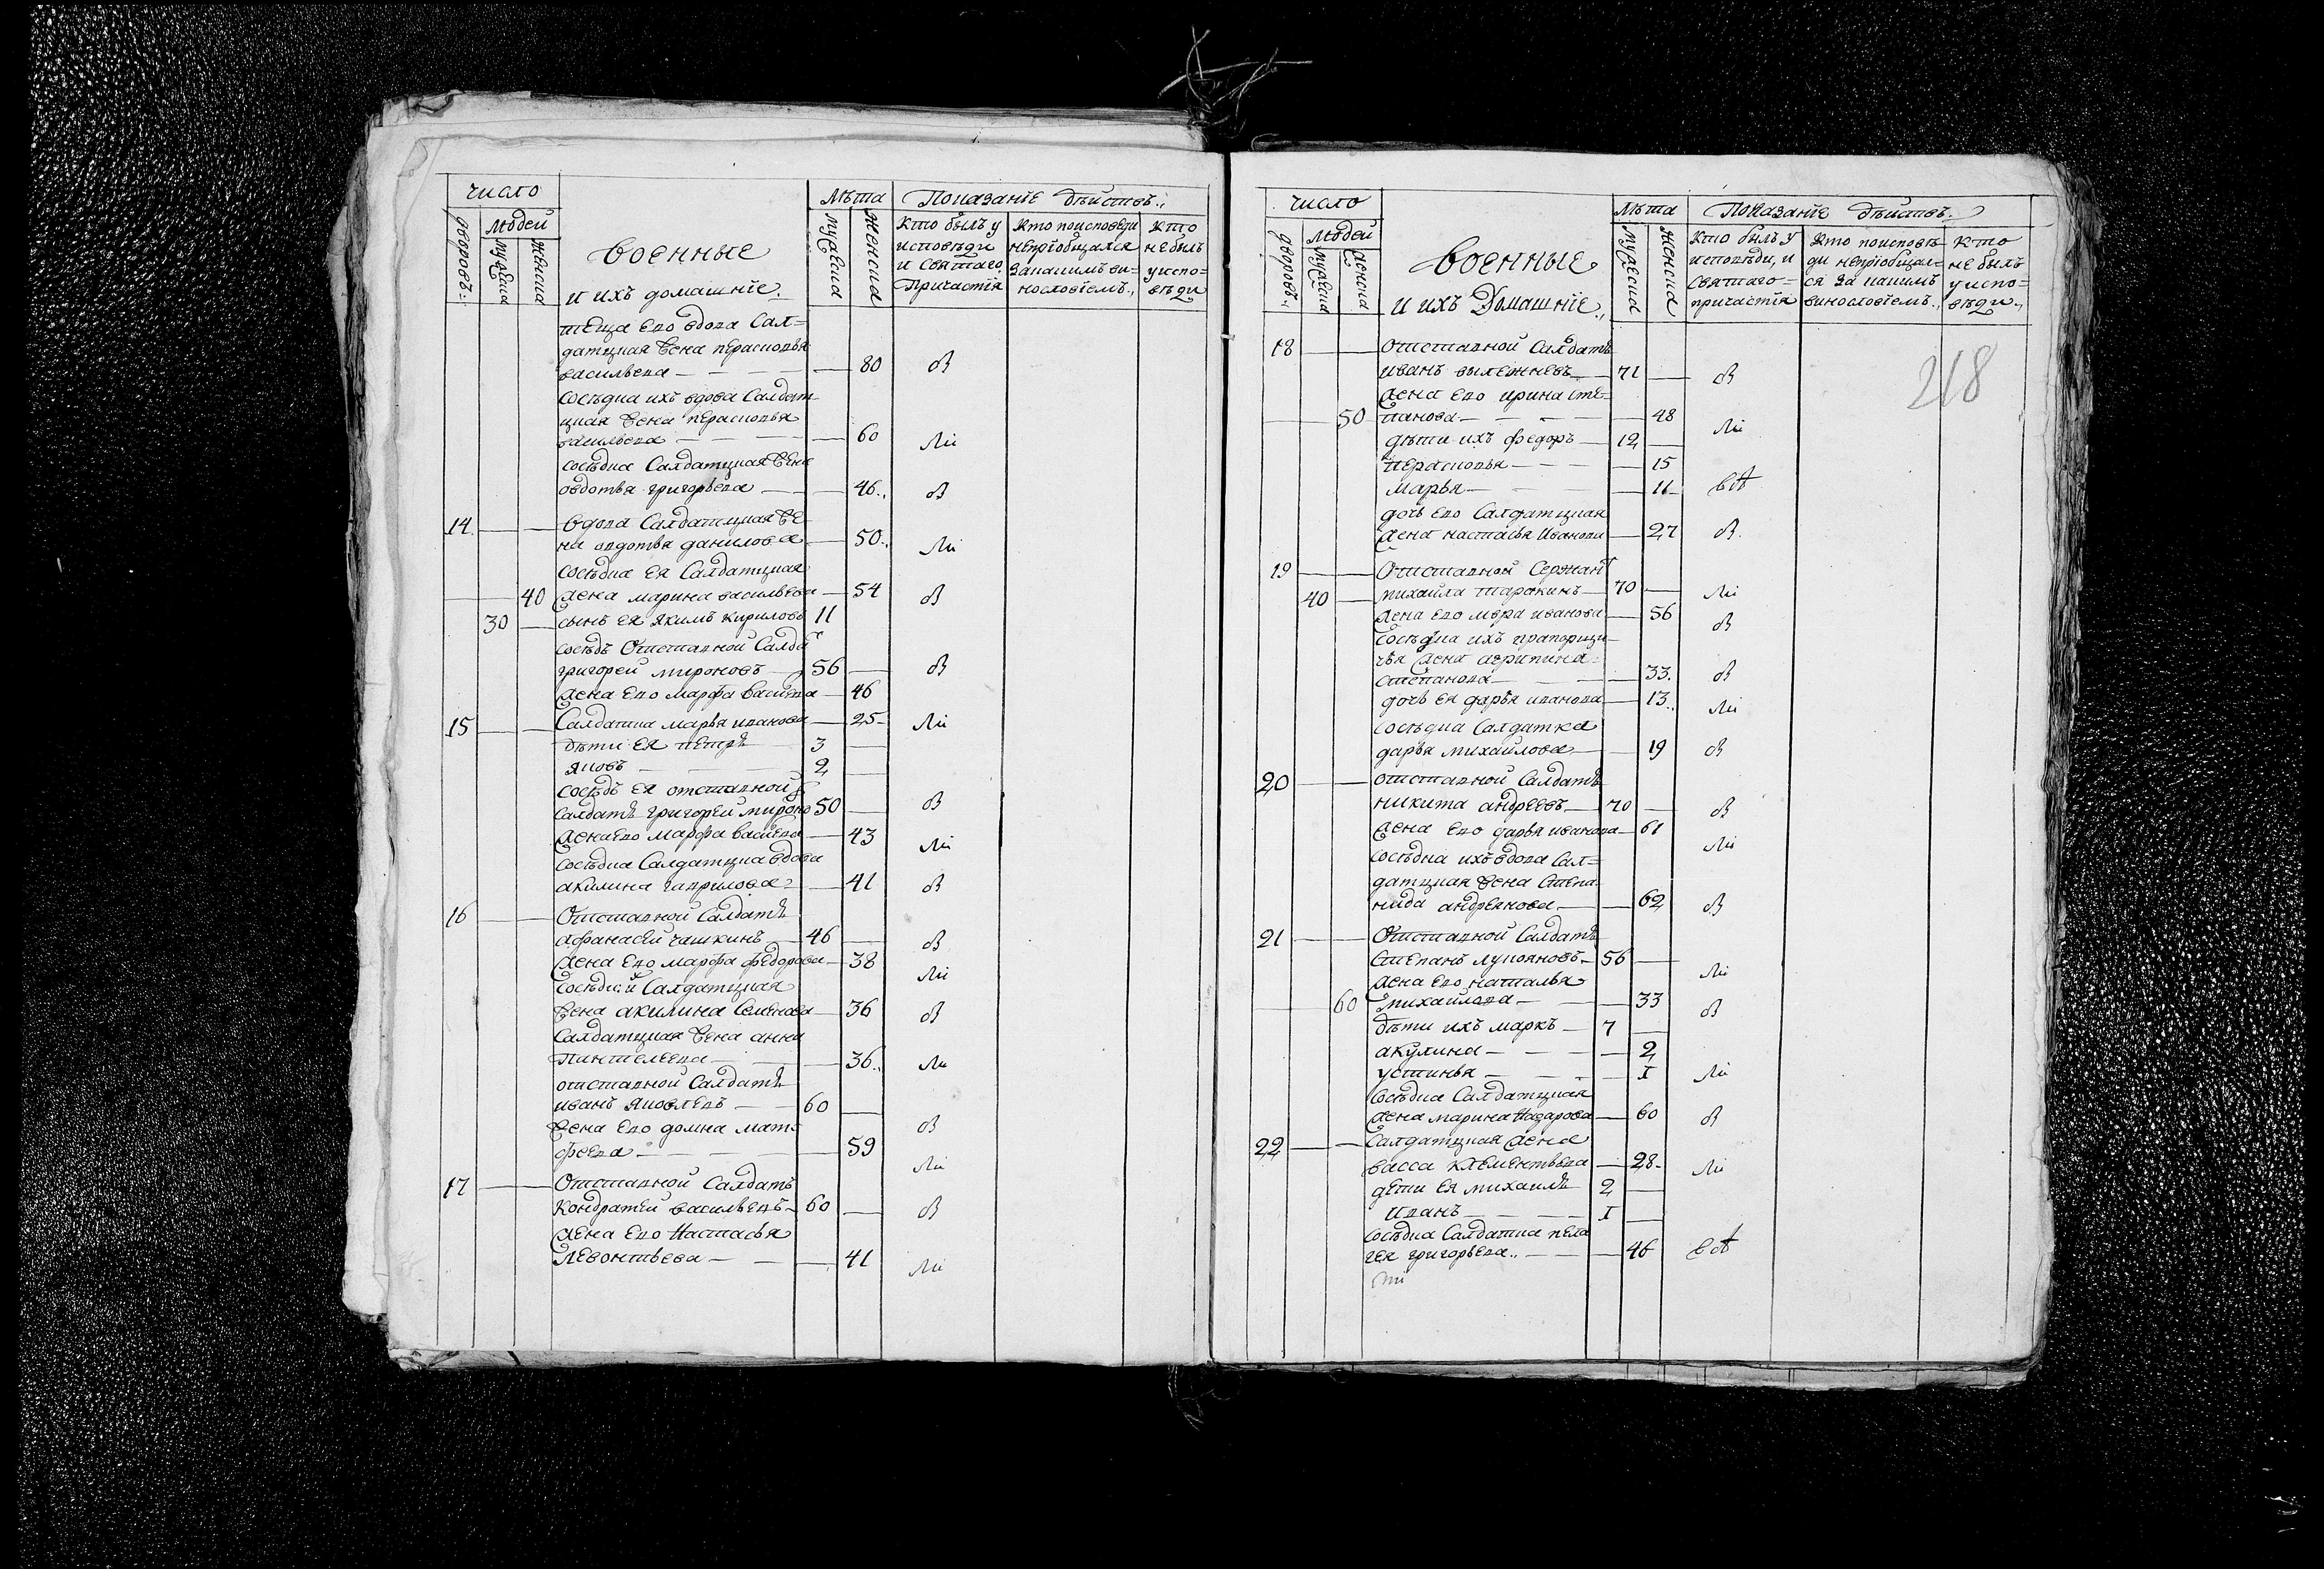 число
Лѣта
Показанїе дѣйствъ.,
дворовъ.,
людей
мужеска
женска
военные
и ихъ домашнїе.
мужеска
женска
Кто былъ у исповѣди и святаго Причастїя
Кто по исповѣди непрїобщался за какимъ винословїемъ.,
Кто небылъ у исповѣди
теща ево вдова Сал=
датцкая жена перасковья
васильева — 80 в
сосѣдка ихъ вдова Салдат
цкая жена перасковья
васильева — 60 ли
сосѣдка Салдатцкая жена
овдотья григорьева — 46., в
14 — вдова Салдатцкая же
на овдотья данилова — 50., ли
сосѣдка ея Салдатцкая
40 жена марина васильева — 54 в
30 — сынъ ея якимъ кириловъ 11
сосѣдъ Отставной Салда
григорей мироновъ — 56 — в
жена ево марфа васил — 46
15 — Салдатка марья иванова — 25 ли
дѣти ея петръ 3 —
яковъ — 2 —
сосѣдъ ея отставной
салдатъ григорей мироно 50 — в
жена ево марфа васил — 43 ли
сосѣдка Салдатцка вдова
акилина гаврилова — 41 в
16 — Отставной Салдатъ
афанасей чашкинъ — 46 — в
жена ево марфа федорова — 38 ли
сосѣдки Салдатцкая
жена акилина Семенова — 36 в
Салдатцкая жена анна
Пантелеева — 36., ли
отставной Салдатъ
иванъ яковлевъ — 60 —
жена ево домна мат
феева — 59 в
ли
17 — Отставной Салдатъ
Кондратей васильевъ — 60 — в
жена ево Настасья
Левонтьева — 41 ли
число
Лѣта
Показанїе дѣйствъ.
дворовъ.,
людей
мужеска
женска
военные
и ихъ Домашнїе.,
мужеска
женска
Кто былъ у исповѣди, и святаго причастїя
Кто по исповѣди непрїобщался за какимъ винословїемъ.,
кто не былъ у исповѣди.,
218
18 — отставной Салдатъ
иванъ — 71 — в
жена ево ирина сте=
50 панова — 48 ли
дѣти ихъ федоръ — 12 —
перасковья — 15
марья — 11 вА
дочь ево Салдатцкая
жена настасья Иванова — 27 в.
19 — Отставной Сержант
40 — михайла тараκинъ — 70 — ли
жена ево иванова — 56 в
сосѣдка ихъ прапорщи
чья жена агрипина
степанова — 33. в
дочь ея дарья иванова — 13., ли
сосѣдка Салдатка
дарья михайлова — 19 в
20 — отставной Салдатъ
никита андреевъ — 70 — в
жена ево дарья иванова — 61 ли
сосѣдка ихъ вдова Сал=
датцкая жена Степа
нида андреянова — 62 в
21 — Отставной Салдатъ
Степанъ лукояновъ — 56 — ли
жена ево наталья
60 михайлова — 33 в
дѣти ихъ маркъ — 7 —
акулина — 2
устинья — 1 ли
сосѣдка Салдатцкая
жена марина Назарова — 60 в
22 — Салдатцкая жена
васса клементьева — 28. ли
дети ея михаилъ 2 —
иванъ — 1 —
сосѣдка Салдатка пела
гея григорьева., — 46 вА
ли